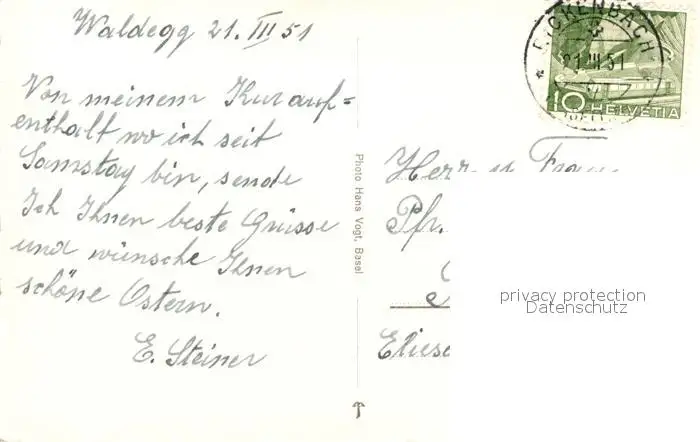 Waldegg 21. III 51
Von meinem Kurauf=
enthalt wo ich seit
Samstag bin, sende
Ich Ihnen beste Grüsse
und wünsche Ihnen
schöne Ostern.
E. Steiner
Photo Hans Vogt, Basel
RICKENBACH
21.III.51
10 HELVETIA
Herr u Frau
Pfr.
privacy protection
Datenschutz